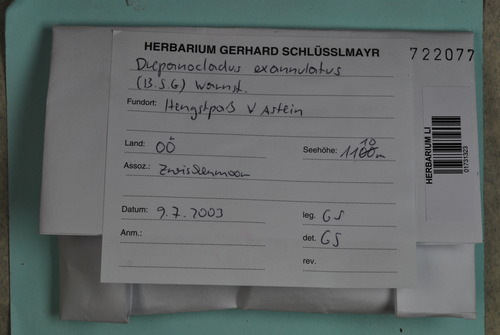 HERBARIUM GERHARD SCHLÜSSLMAYR
722077
Drepanocladus exannulatus
(B.S.G) Warnst.
Fundort: Hengstpaß V Astein
Land: OÖ
Seehöhe: 1100m
10
Assoz.: Zwischenmoor
Datum: 9.7.2003
leg. GS
Anm.:
det. GS
rev.
HERBARIUM LI
01731323